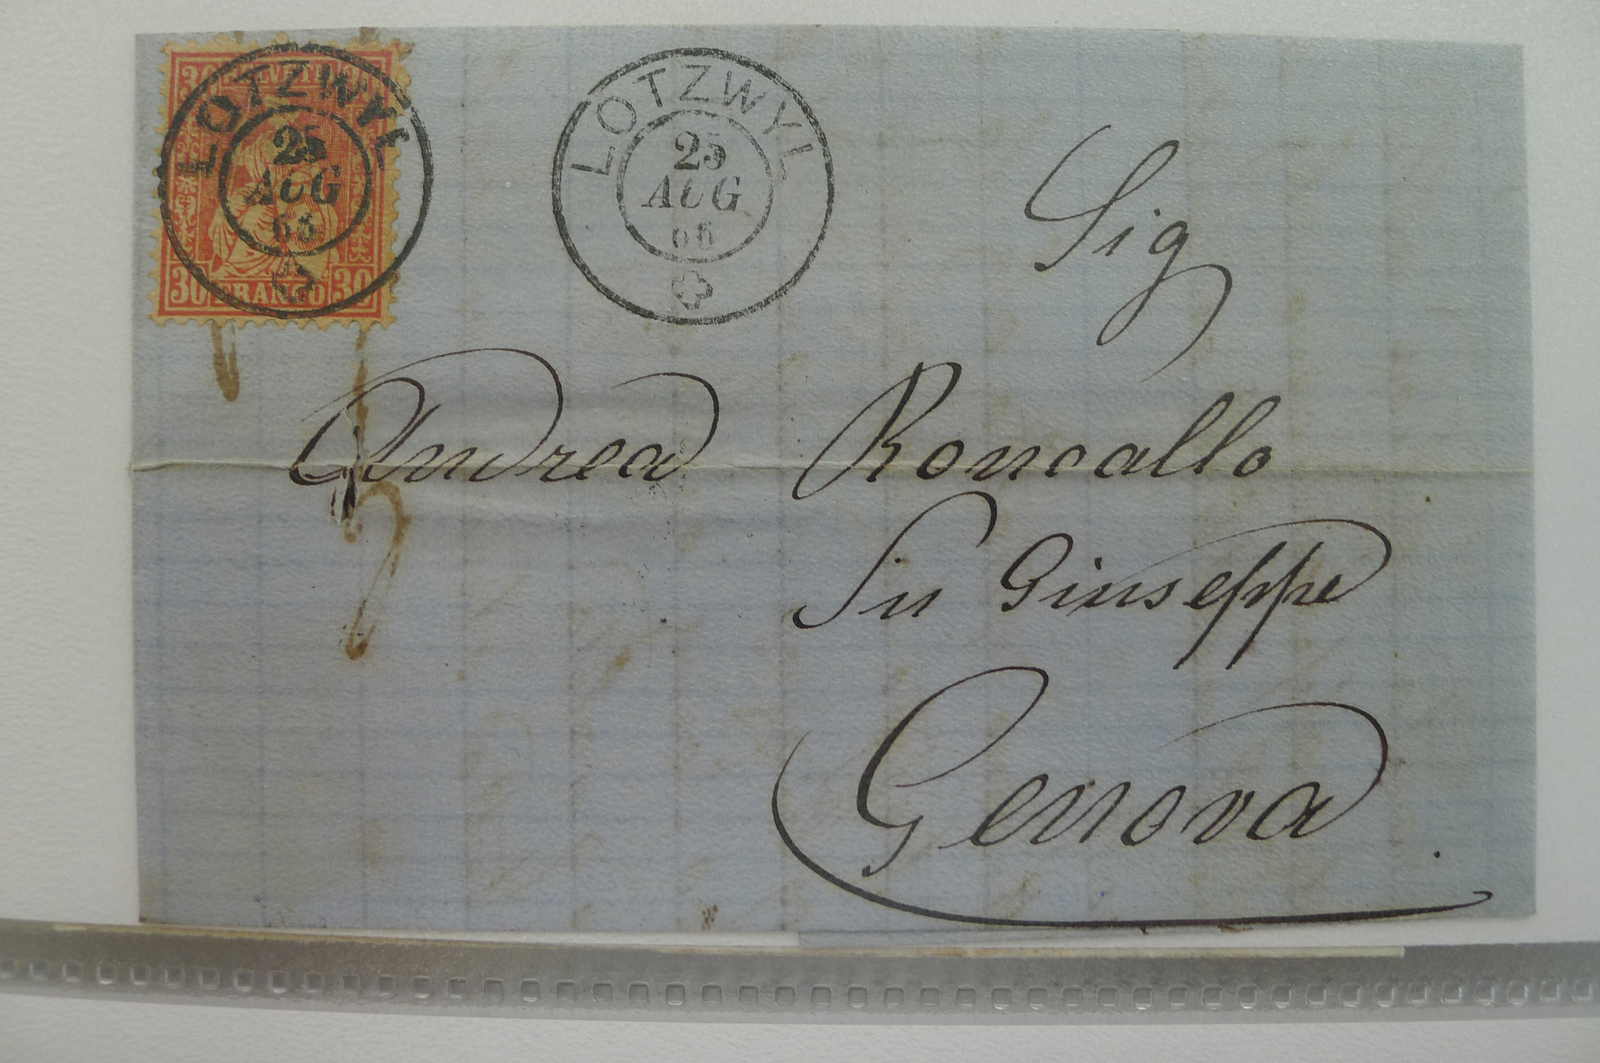 30 HELVETIA 30
LOTZWYL
25
AUG
65
30 FRANCO 30
LOTZWYL
25
AUG
Sig
Andrea Roncallo
Fu Giuseppe
Genova